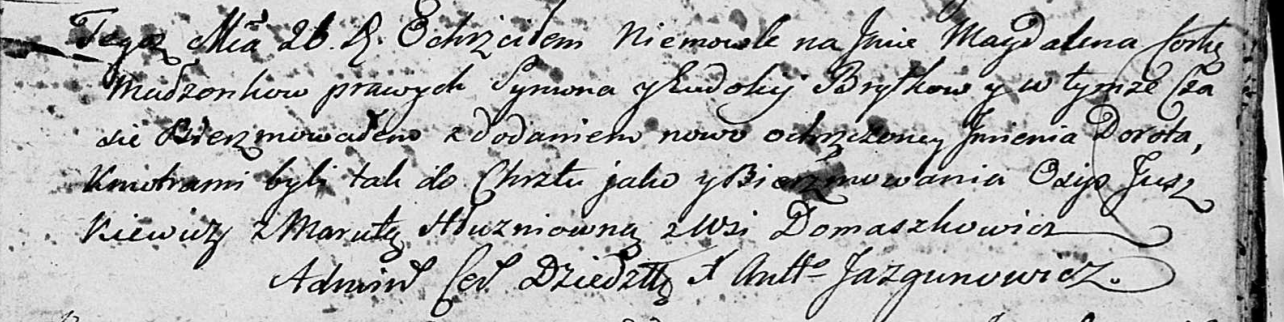 Tegoż Mca 26 D. Ochrzciłem Niemowle na Jmie Magdalena Corkę
Małżonkow prawych Symona y Eudokij Bryłkow y w tymże Cza
sie Bierzmowałem z dodaniem nowo ochrzczoney Jmienia Dorota,
Kmotrami byli tak do Chrztu jako y Bierzmowania Osip Jusz
kiewicz z Marutą Hłuzniowną z Wsi Domaszkowicz
Admin Cer Dziedz X Antt Jazgunowicz.